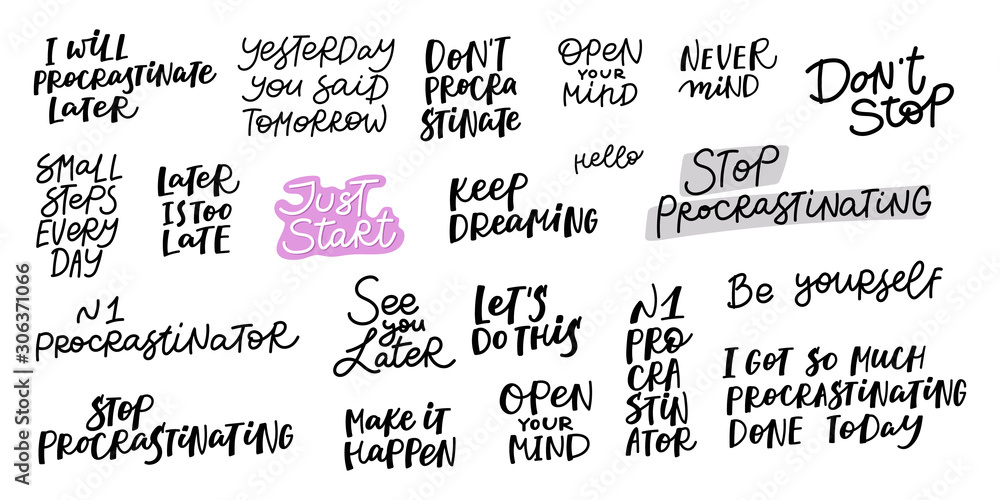 I WILL
PROCRASTINATE
LATER
YESTERDAY
YOU SAID
TOMORROW
DON'T
PROCRA
STINATE
OPEN
YOUR
MIND
NEVER
MIND
DON'T
STOP
SMALL
STEPS
EVERY
DAY
LATER
IS TOO
LATE
JUST
START
KEEP
DREAMING
Hello
STOP
PROCRASTINATING
N1
PROCRASTINATOR
See
you
Later
LET'S
DO THIS
N1
PRO
CRA
STIN
ATOR
Be yourself
I GOT SO MUCH
PROCRASTINATING
DONE TODAY
STOP
PROCRASTINATING
MAKE IT
HAPPEN
OPEN
YOUR
MIND
Adobe Stock | #306371066
Adobe Stock
Adobe Stock
Adobe Stock